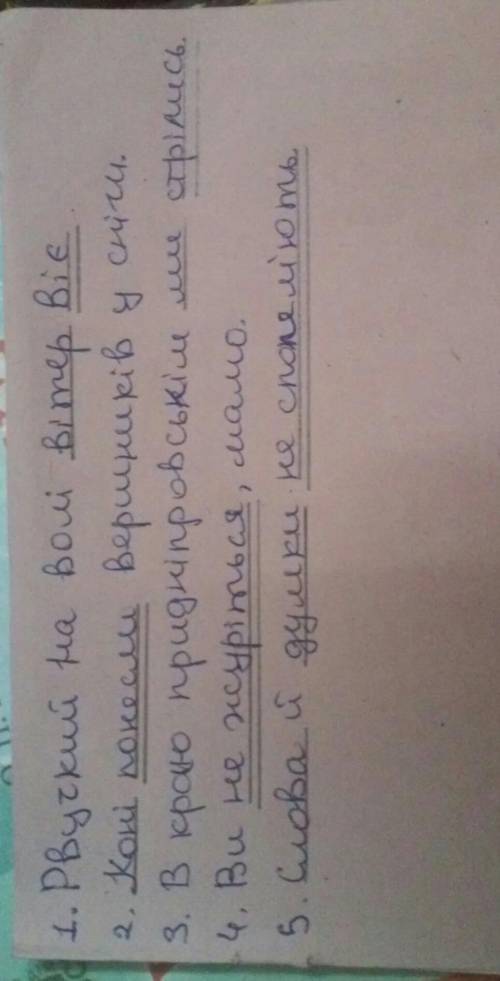 1. Рвучкий на волі вітер віє
2. Коні понесли вершників у сніги.
3. В краю придніпровськім ми стрілись.
4. Ви не журіться, мамо.
5. Слова й думки не спопеліють.